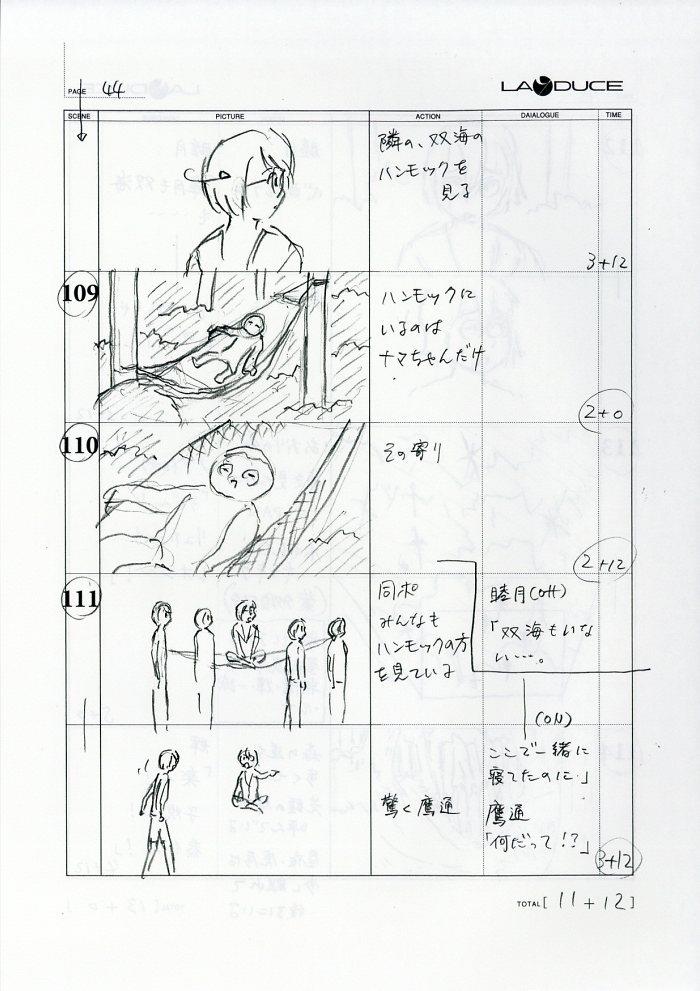 PAGE 44
LA DUCE
SCENE PICTURE ACTION DAIALOGUE TIME
隣の、双海の
ハンモックを
見る
3+12
109
ハンモックに
いるのは
ナマちゃんだけ
2+0
110
その寄り
2+12
111
同ポ
みんなも
ハンモックの方
を見ている
睦月(OFF)
「双海もいな
い…。
(ON)
ここで一緒に
寝てたのに」
驚く鷹通
鷹通
「何だって!?」
3+12
TOTAL[ 11+12 ]